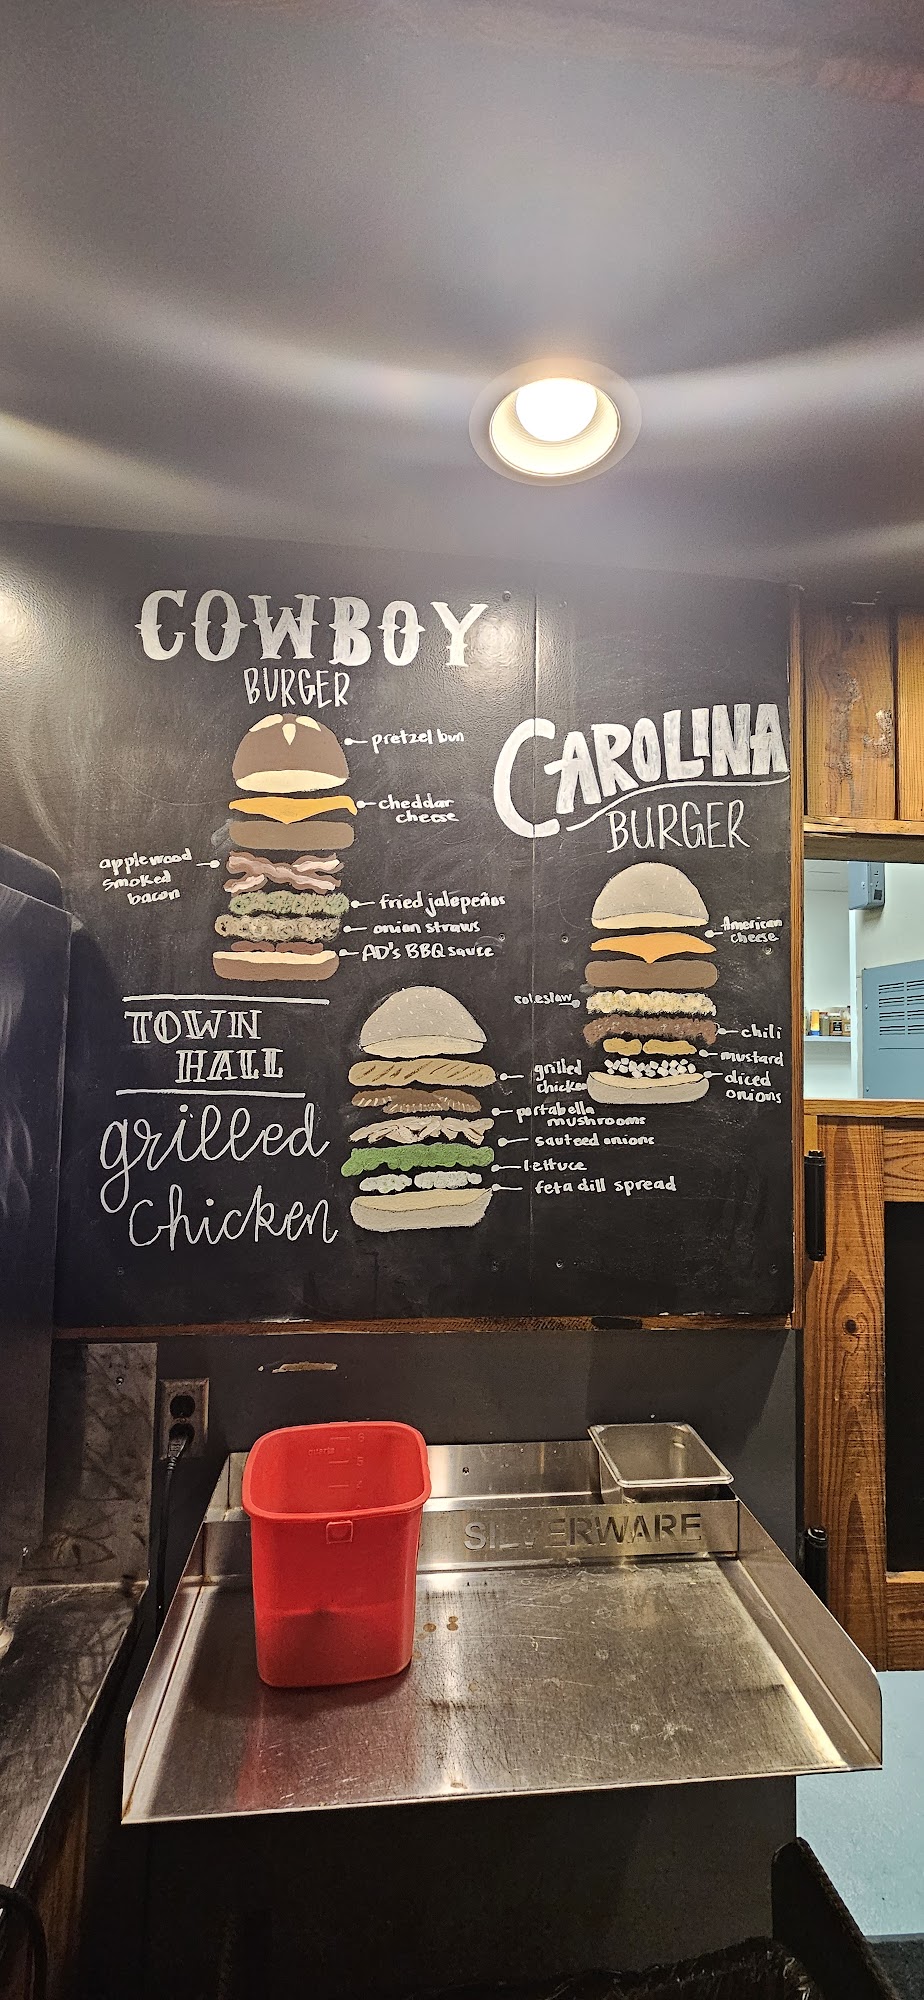 COWBOY
BURGER
pretzel bun
cheddar
cheese
applewood
smoked
bacon
fried jalapeños
onion straws
AD's BBQ sauce
CAROLINA
BURGER
American
cheese
coleslaw
chili
mustard
diced
onions
TOWN
HALL
grilled
chicken
grilled
chicken
portabella
mushrooms
sauteed onions
lettuce
feta dill spread
SILVERWARE